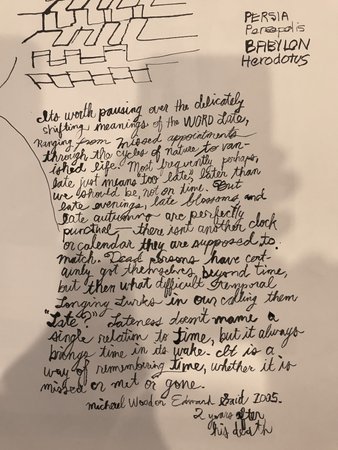 PERSIA
Persepolis
BABYLON
Herodotus
Its worth pausing over the delicately
shifting meanings of the WORD Late,
ranging from missed appointments
through the cycles of nature to van-
ished life. Most frequently perhaps,
late just means too late, later than
we should be, not on time. But
late evenings, late blossoms and
late autumns are perfectly
punctual — there isnt another clock
or calendar they are supposed to
match. Dead persons have cert-
ainly got themselves beyond time,
but then what difficult temporal
Longing lurks in our calling them
"Late"? Lateness doesn't name a
single relation to time, but it always
brings time in its wake. It is a
way of remembering time, whether it is
missed or met or gone.
michael Wood on Edward Said 2005.
2 years after
his death